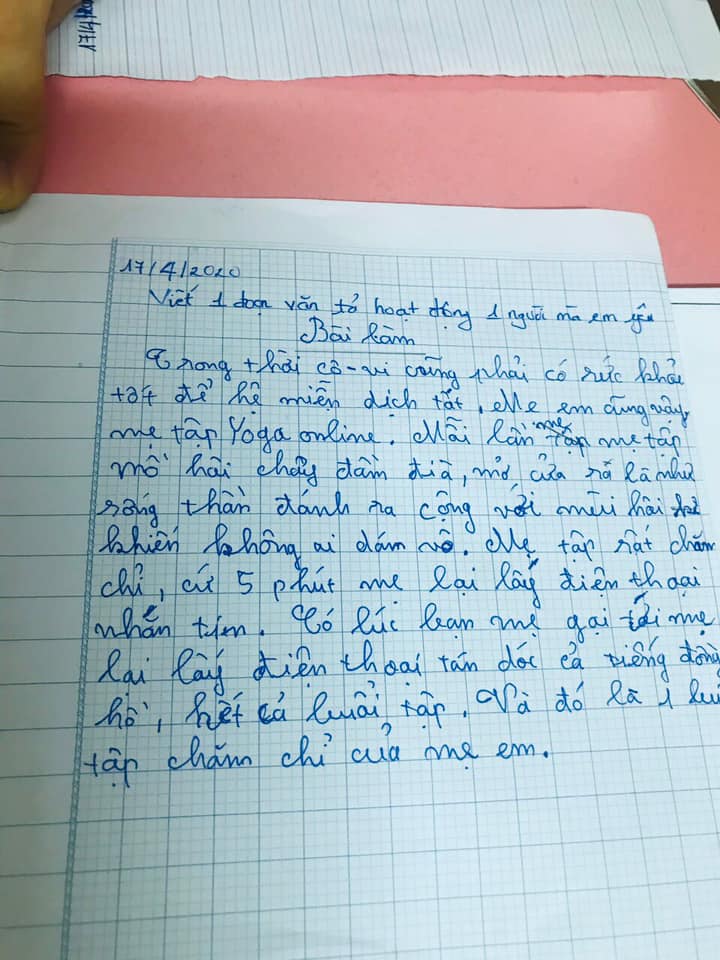 17/4/2020
Viết 1 đoạn văn tả hoạt động 1 người mà em yêu
Bài làm
Trong thời cô-vi cũng phải có sức khỏe
tốt để hệ miễn dịch tốt. Mẹ em cũng vậy,
mẹ tập Yoga online. Mỗi lần mẹ tập mẹ tập
mồ hôi chảy đầm đìa, mở cửa ra là như
sóng thần đánh ra cộng với mùi hôi
khiến không ai dám vô. Mẹ tập rất chăm
chỉ, cứ 5 phút mẹ lại lấy điện thoại
nhắn tin. Có lúc bạn mẹ gọi tới mẹ
lại lấy điện thoại tán dóc cả tiếng đồng
hồ, hết cả buổi tập. Và đó là 1 buổi
tập chăm chỉ của mẹ em.